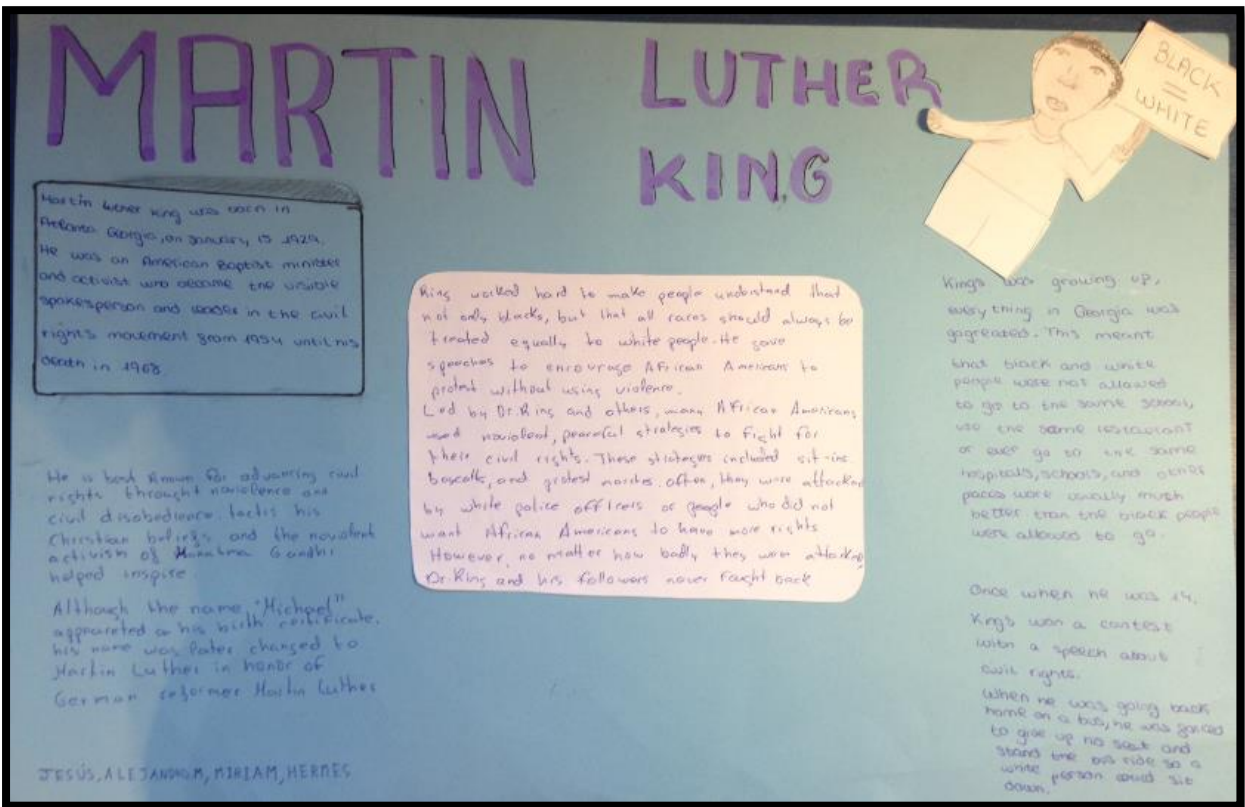 MARTIN
LUTHER
KING
BLACK
=
WHITE
Martin luther king was born in
Atlanta Georgia, on January, 15 1929.
He was an American Baptist minister
and activist who became the visible
spokesperson and leader in the civil
rights movement from 1954 until his
death in 1968.
He is best known for advancing civil
rights throught noviolence and
civil disobedience. tactis his
Christian beliefs and the noviolent
activism of Mahatma Gandhi
helped inspire
Although the name, "Michael"
appeareted on his birth certificate,
his name was later changed to
Martin Luther in honor of
German reformer Martin Luther
JESÚS, ALEJANDRO M, MIRIAM, HERMES
King worked hard to make people undestand that
not only blacks, but that all races should always be
treated equally to white people. He gave
speeches to encourage African Americans to
protest without using violence.
Led by Dr. King and others, many African Americans
used noviolent, peaceful strategies to fight for
their civil rights. These strategies included sit-ins,
boycotts, and protest marches. often, they were attacked
by white police officers or people who did not
want African Americans to have more rights
However, no matter how badly they were attacked,
Dr. King and his followers never faught back
Kings was growing up,
every thing in Georgia was
gagreated. This meant
that black and white
people were not allowed
to go to the same school,
use the same restaurant
or ever go to the same
hospitals, schools, and other
paces were usually much
better than the black people
were allowed to go.
Once when he was 14,
Kings won a contest
with a speech about
civil rights.
When he was going back
home on a bus, he was forced
to give up his seat and
stand the bus ride so a
white person could sit
down.